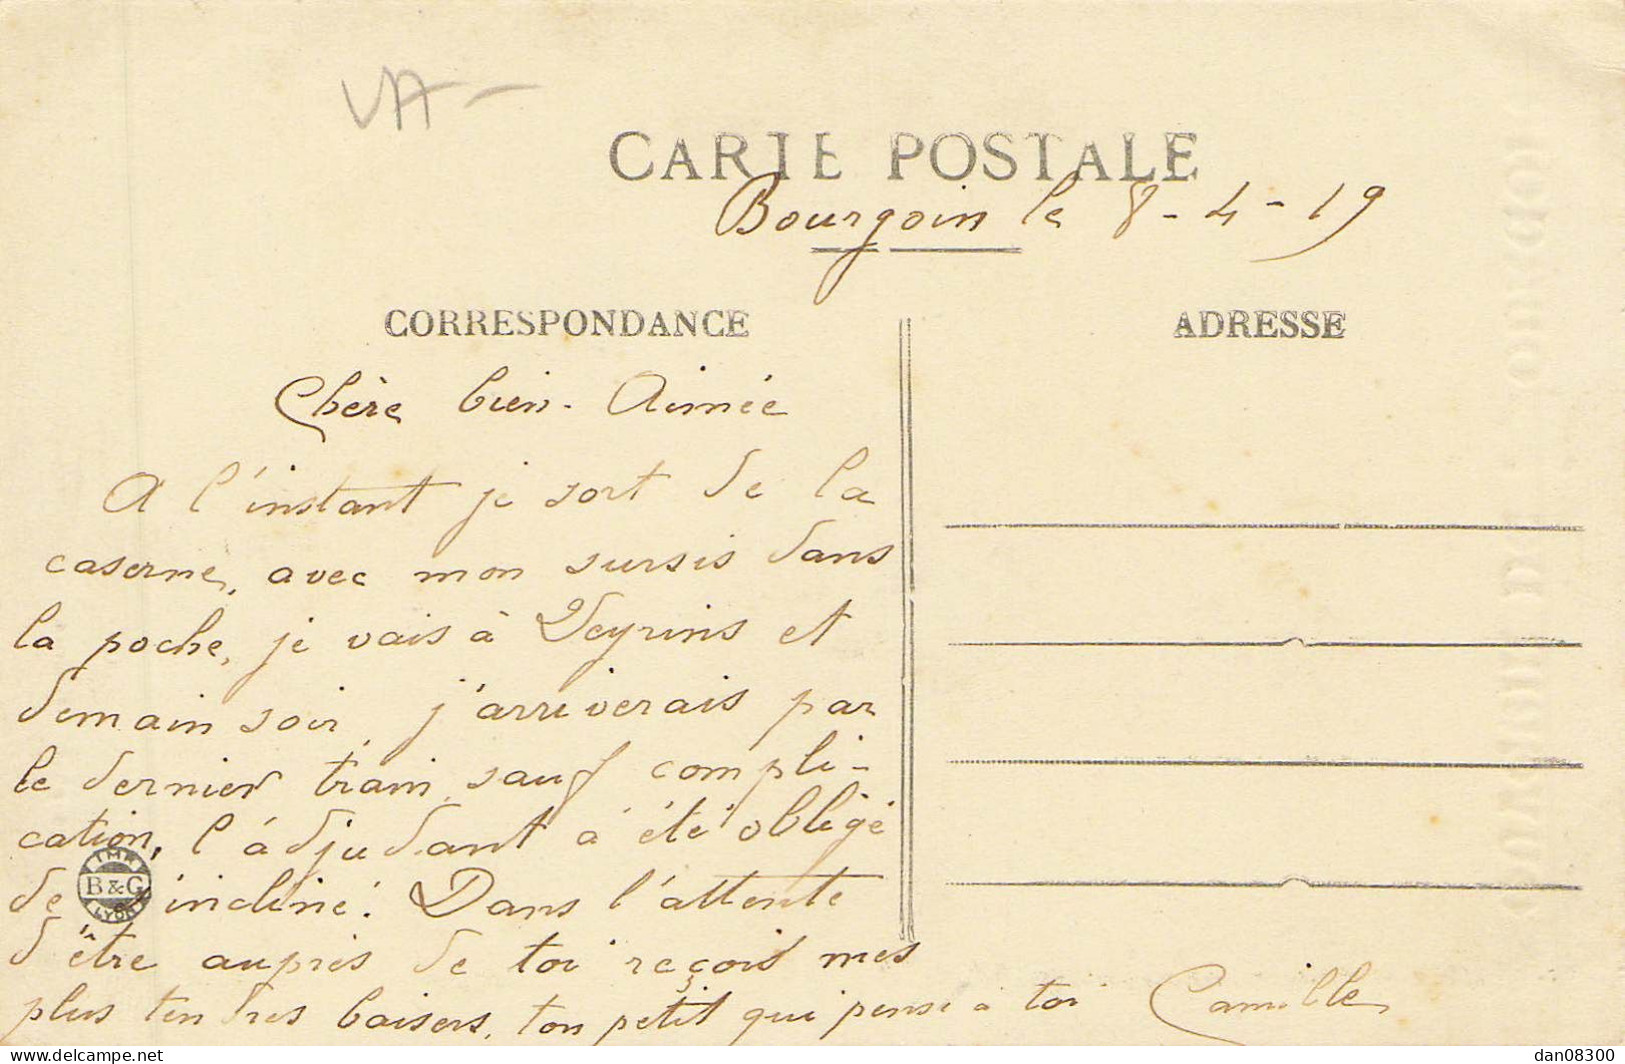 VA-
CARTE POSTALE
Bourgoin le 8-4-19
CORRESPONDANCE
ADRESSE
Chère bien-Aimée
A l'instant je sort de la
caserne, avec mon sursis dans
la poche, je vais à Veyrins et
demain soir, j'arriverais par
le dernier train, sauf compli-
cation, l'adjudant a été obligé
de s'incliné. Dans l'attente
d'être auprès de toi reçois mes
plus tendres baisers, ton petit qui pense à toi Camille
IMP.
B&G
LYON
delcampe.net
dan08300